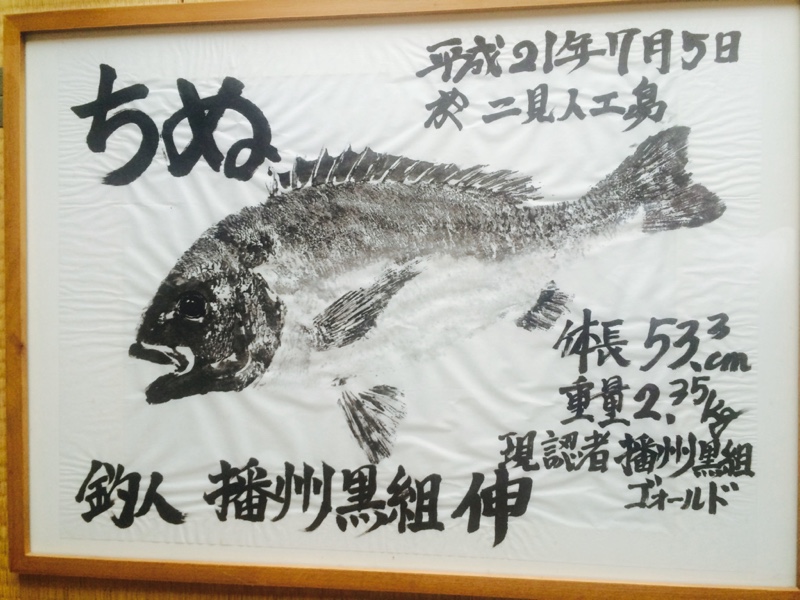 ちぬ
平成21年7月5日
於 二見人工島
体長 53.3cm
重量 2.35kg
現認者 播州黒組
ゴォールド
釣人 播州黒組 伸